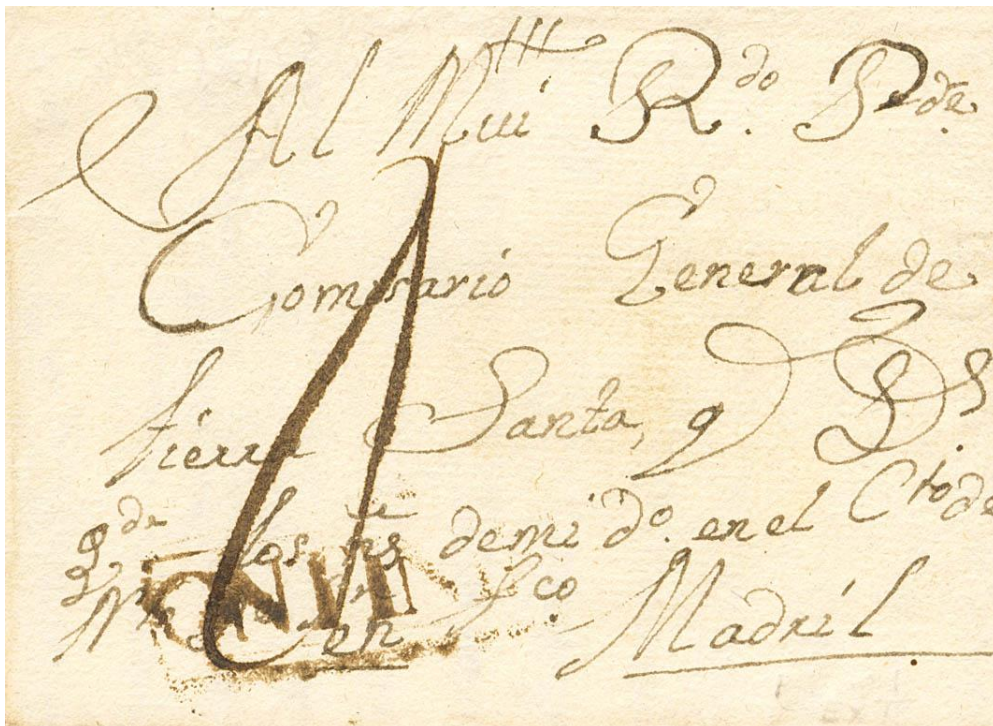 Al Mui R.do P.de
Comisario General de
tierra Santa, q D.s
g.de los a.s de mi d.o en el C.to de
N. S.co
en Madrid